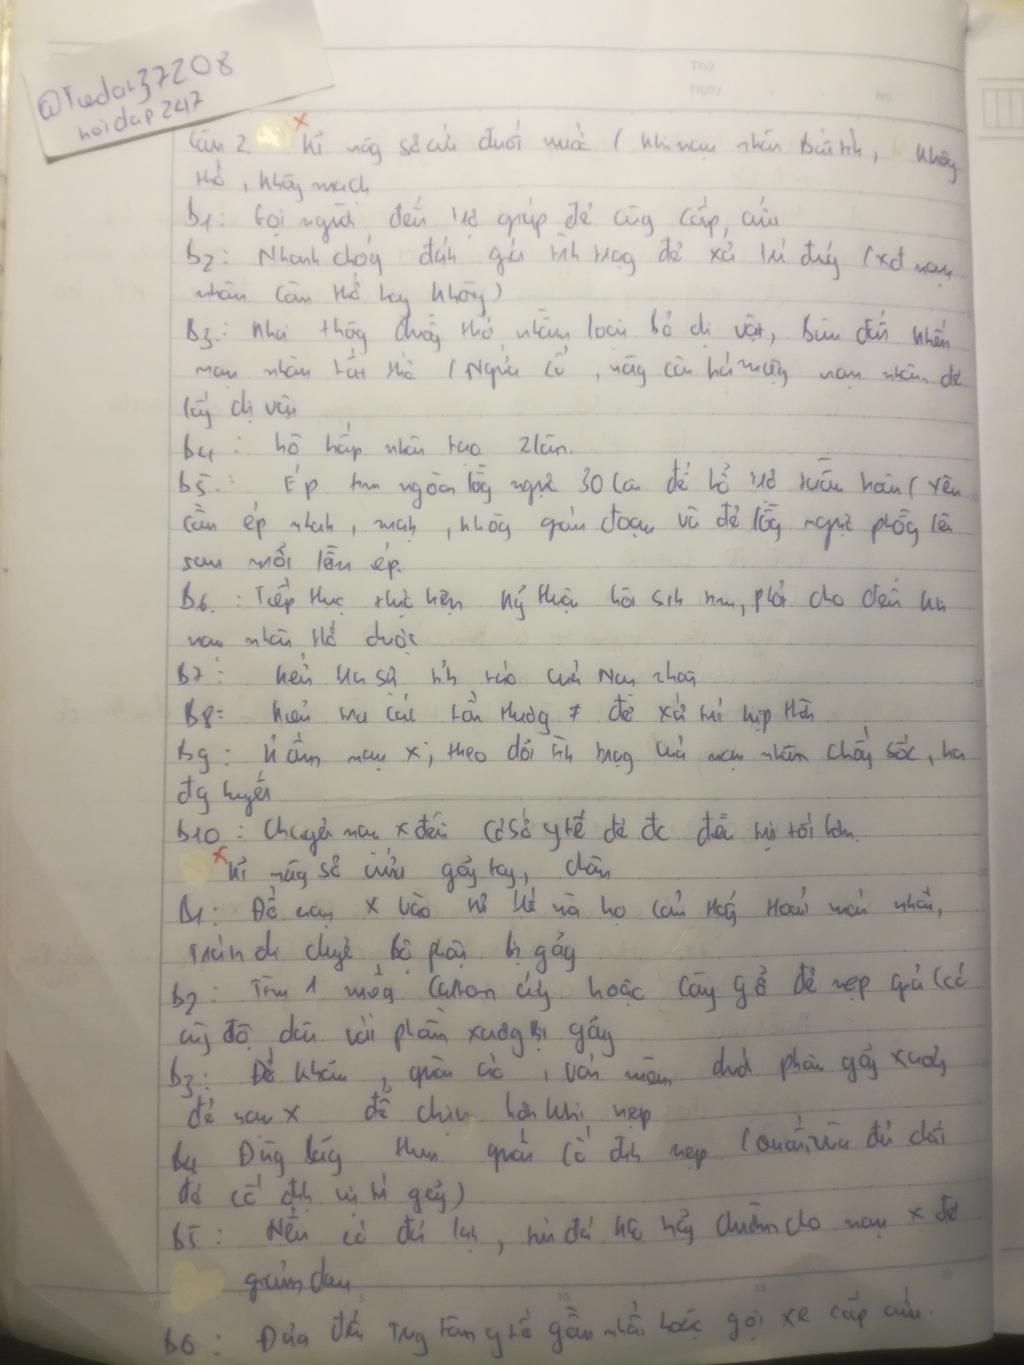 @Tuedar37208
hoidap247
Thứ
Ngày
No
Câu 2 x Kĩ năg sơ cứu đuối nước ( khi nạn nhân bất tỉnh, không
thở, không mạch
B1: Gọi người đến hỗ giúp để cùg cấp, cứu
B2: Nhanh chóg đánh giá tình trạg để xử trí đúg (xđ nạn
nhân còn thở hay không)
B3: khai thôg đườg thở nhằm loại bỏ dị vật, bùn đất khiến
nạn nhân tắt thở (Ngửa cổ, nâg cằm há miệg nạn nhân để
lấy dị vật
B4: hô hấp nhân tạo 2 lần.
B5: Ép tim ngoài lồg ngực 30 lần để hỗ trợ tuần hoàn ( yêu
cầu ép nhah, mạh, khôg gián đoạn và để lồg ngực phồg lên
sau mỗi lần ép.
B6: Tiếp tục thực hiện kỹ thuật hồi sih tim, phổi cho đến khi
nạn nhân thở được
B7: kiểm tra sự tỉh táo của Nạn nhân
B8: kiểm tra các tổn thươg ≠ để xử trí kịp thời
B9: ủ ấm nạn x, theo dõi tìh trạg của nạn nhân chốg sốc, hạ
đg huyết
B10: Chuyển nạn x đến cơ sở y tế để đc điều trị tốt hơn.
x Kĩ năg sơ cứu gãy tay, chân
B1: Để nạn x vào tư thế mà họ cảm thấy thoải mái nhất,
Tránh di chuyể bộ phận bị gãy
B2: Tìm 1 miếg Catton cứg hoặc cây gỗ để nẹp giữ (có
cùg độ dài với phần xươg bị gãy
B3: Để khăn, quần áo, vải mềm dưới phần gãy xươg
để nạn x dễ chịu hơn khi nẹp
B4 Dùg băg thun quấn cố địh nẹp (quấn vừa đủ chặt
để cố địh vị trí gãy)
B5: Nếu có đá lạh, túi đá thì hãy chườm cho nạn x để
giảm đau
B6: Đưa đến Trug tâm y tế gần nhất hoặc gọi xe cấp cứu.